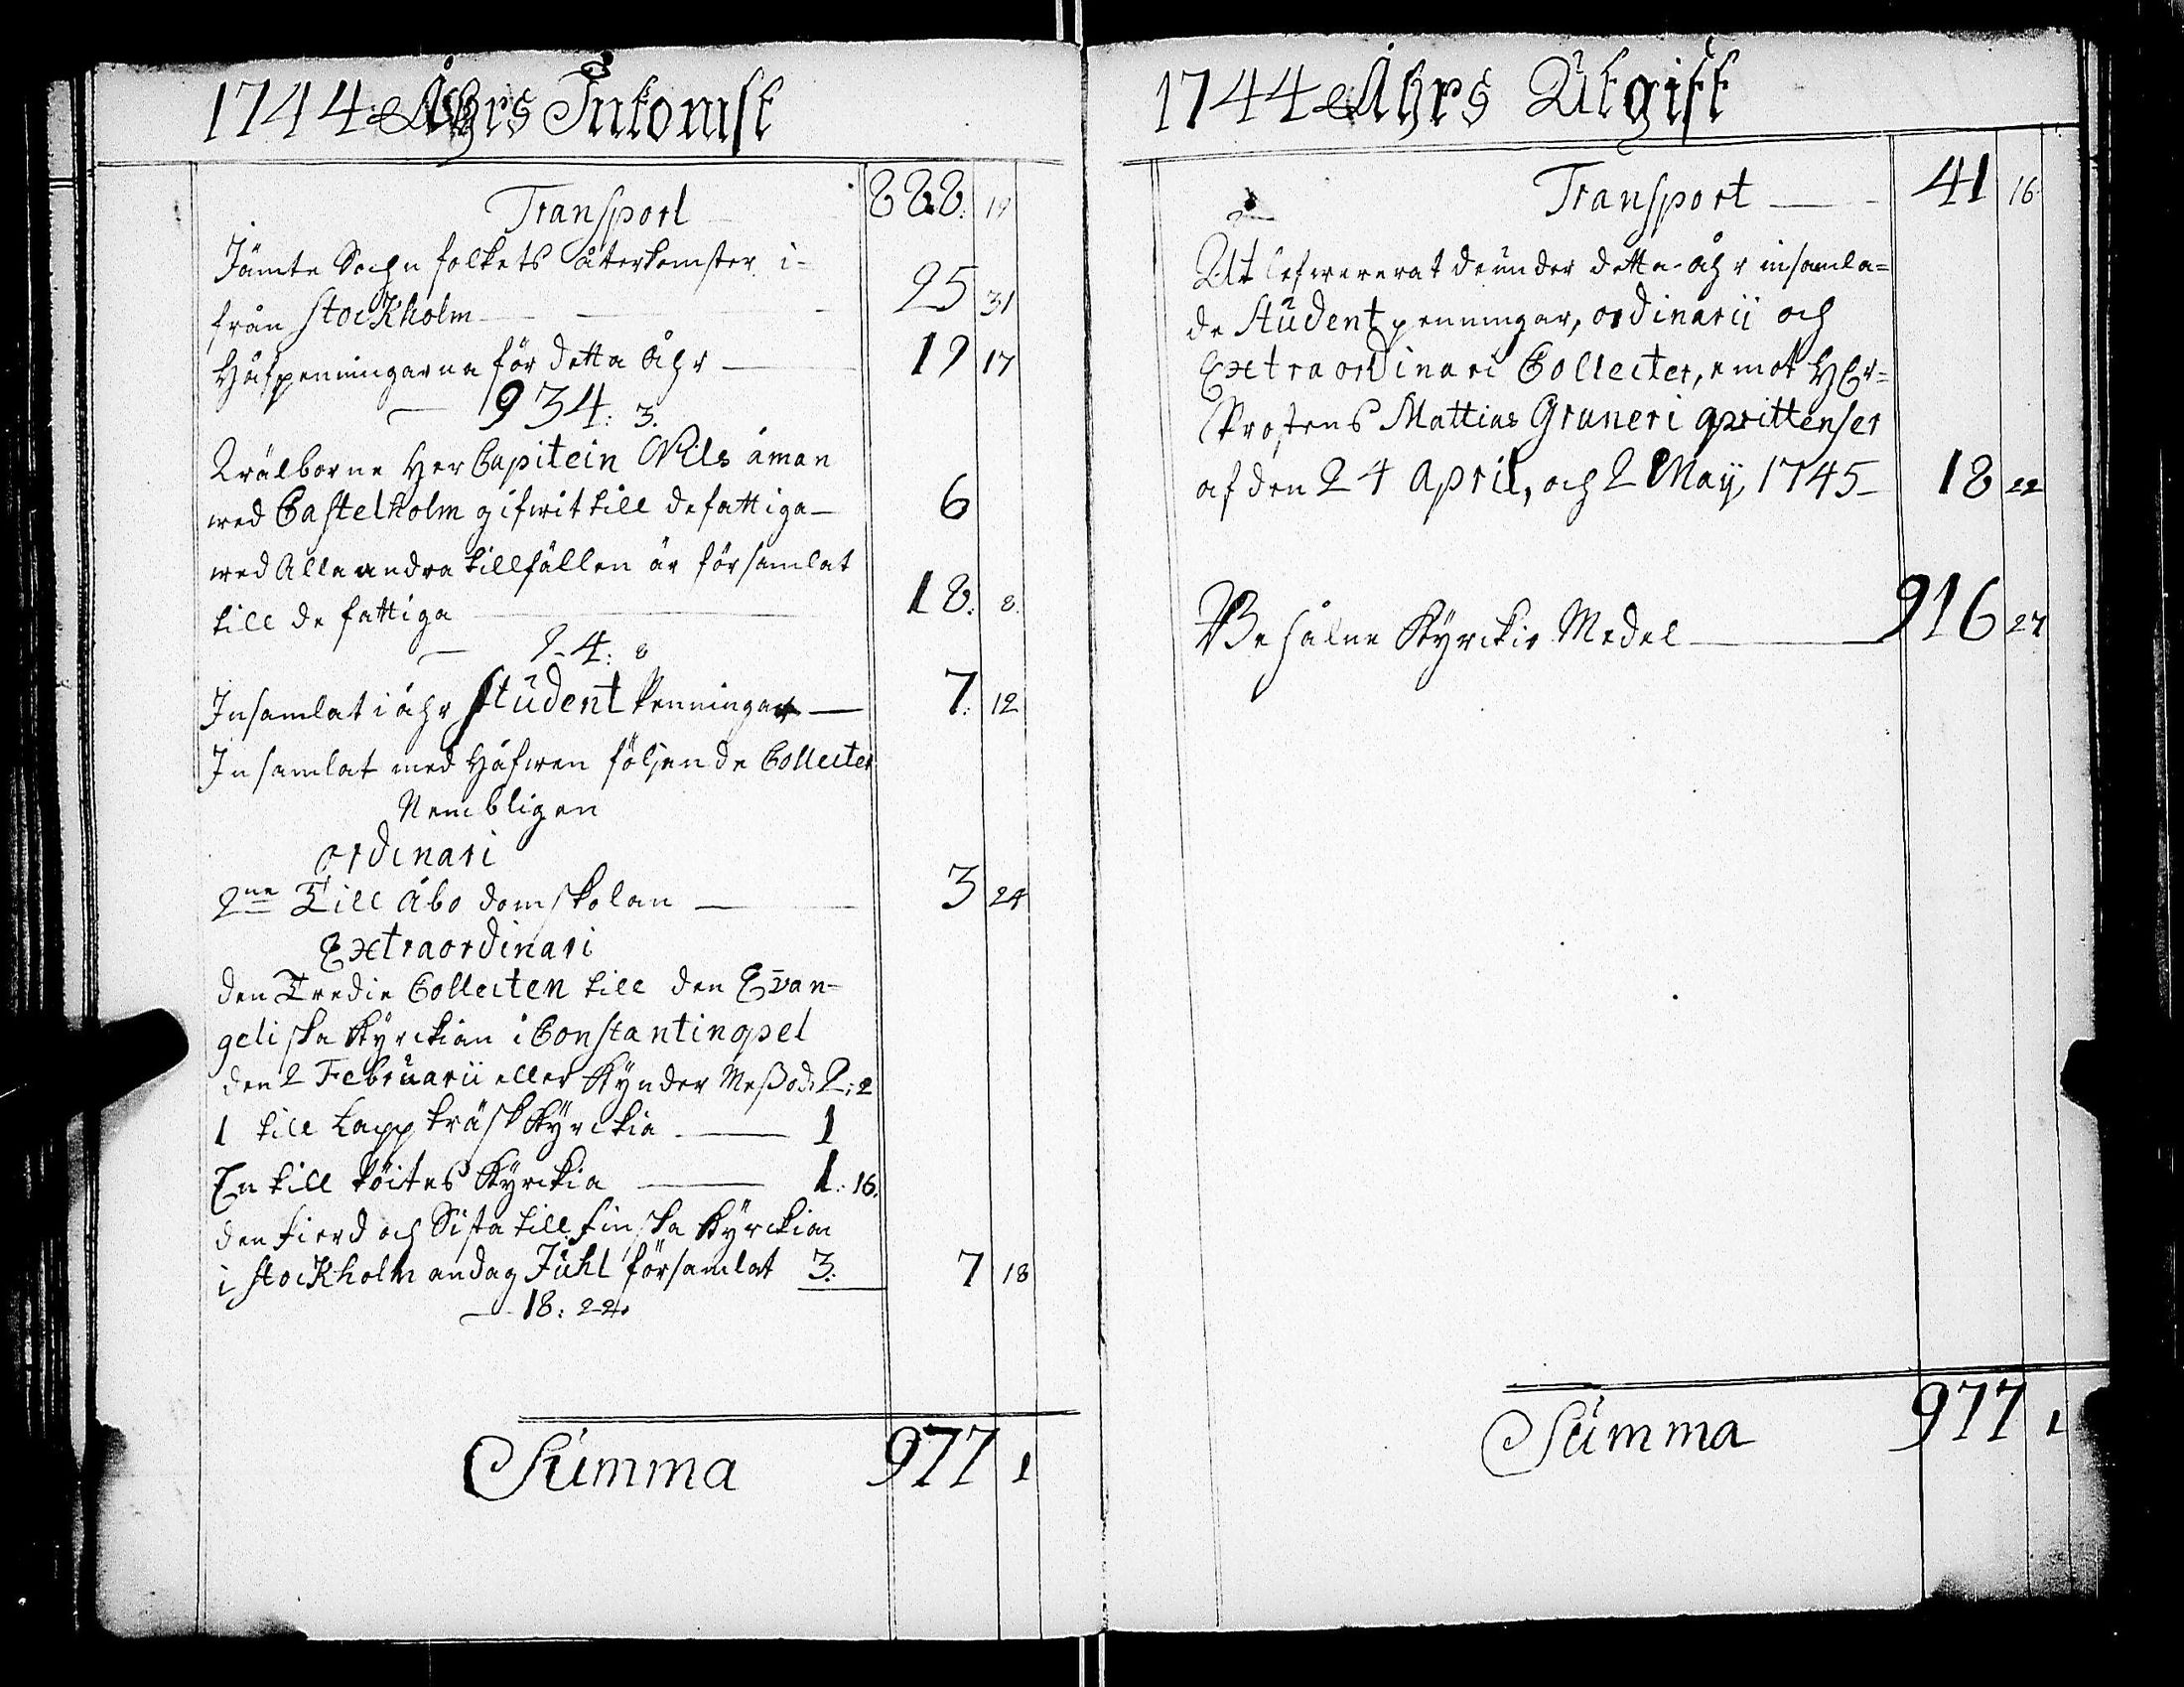 1744 Åhrs Inkomst
Transport 888: 19
Jämte Sochn folkets återkomster i-
från StocKholm 25 31
Håfpenningarne för detta Åhr 19 17
934: 3.
Wälborne Her Capitein Nils åman
wed Castelholm gifwit till de fattiga 6
wed Alla andra tillfällen är församlat
till de fattiga 18: 8.
24: 8
Insamlat i åhr Student Penningar 7: 12
Insamlat med Håfwen följande Collecter
Nembligen
Ordinari
2ne Till Åbo domskolan 3 24
Extraordinari
den Tredie Collecten till den Evan=
geliska Kyrckian i Constantinopel
den 2 Februarii eller Kynder Meßod. 2: 2
1 till Lappträsk Kyrckia 1
En till Kyrckia 1: 16.
den fierd och Sista till Finska Kyrckian
i StocKholm andag Juhl församlat 3. 7 18
18: 22.
Summa 977 1
1744 Åhrs Utgift
Transport 41 16
Ut lefwererat de under detta åhr insamla=
de Student penningar, ordinarii och
Extraordinari Collecter, emot HEr=
Prostens Mattias Gruneri qvittenser
af den 24 April, och 2 Maij, 1745 18 22
Behålne Kyrckio Medel 916 27
Summa 977 1